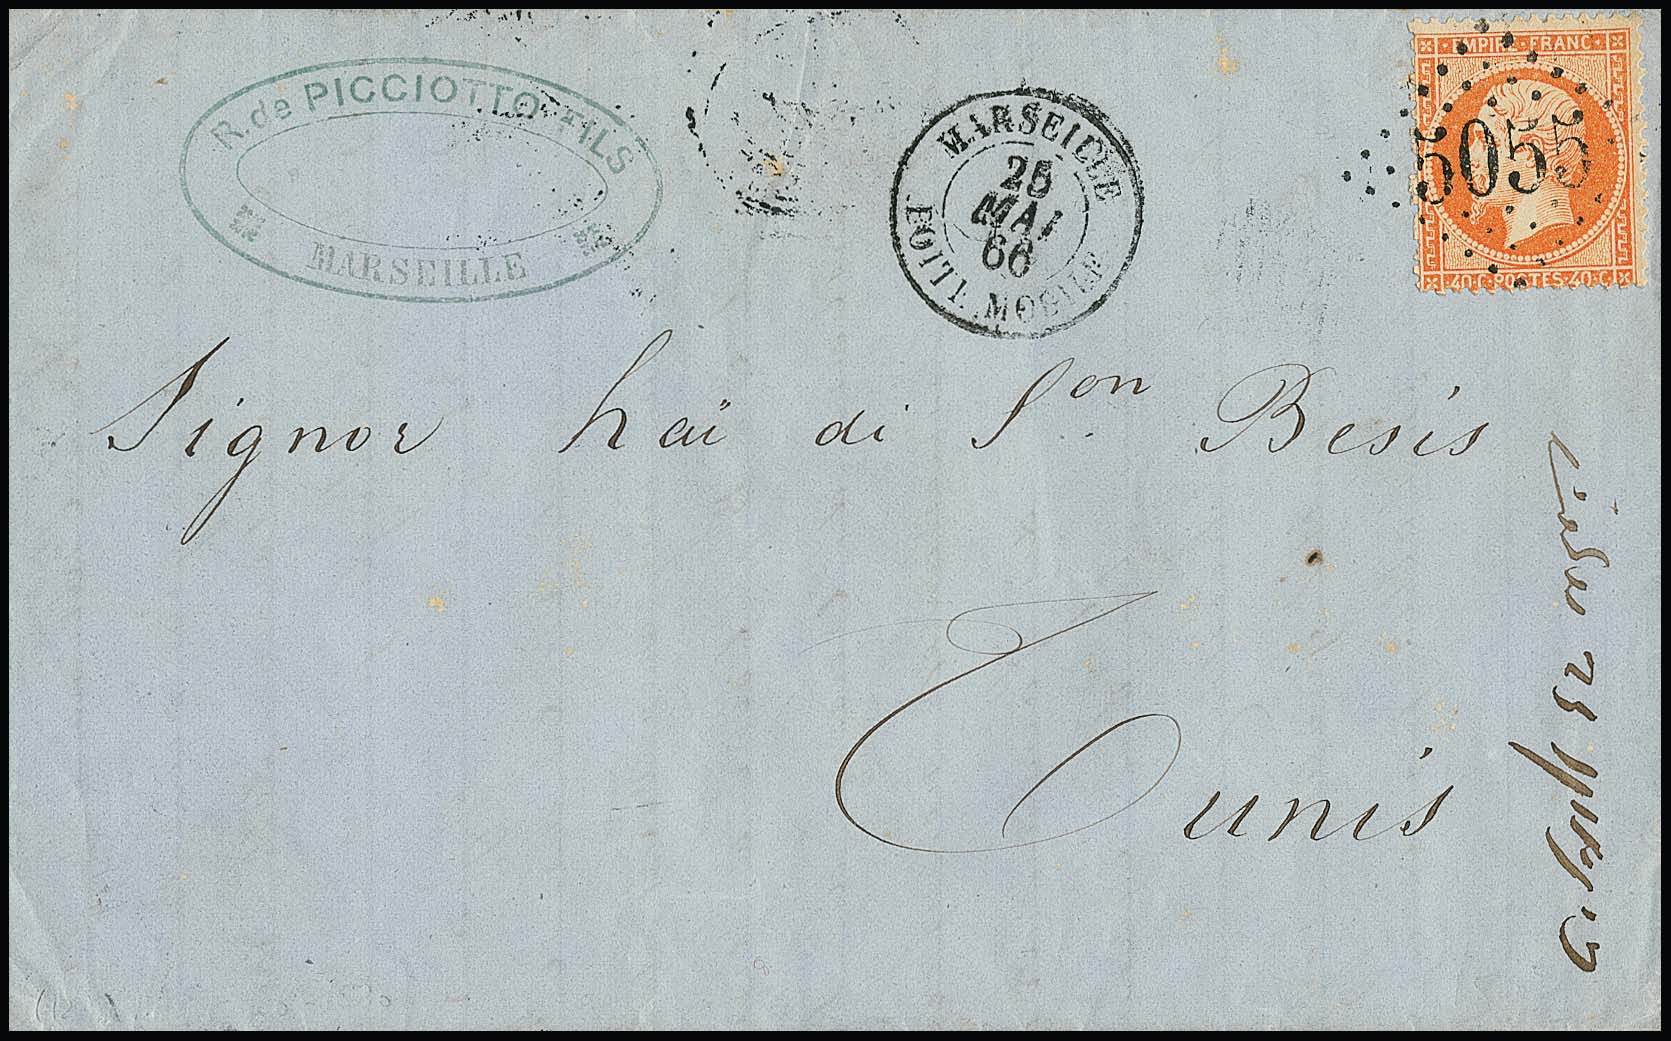 R. de PICCIOTTO FILS
MARSEILLE
MARSEILLE
25
MAI
66
BOITE MOBILE
EMPIRE FRANC
5055
40 C POSTES 40 C
Signor haï di Son Besis
Tunis